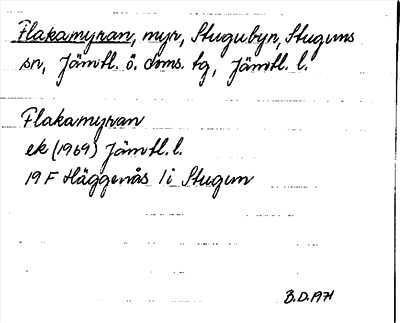 Flakamyran, myr, Stugubyn, Stuguns
sn, Jämtl. ö. doms. tg, Jämtl. l.
Flakamyran
ek (1969) Jämtl. l.
19 F Häggenås 1i Stugun
B.D. 1971